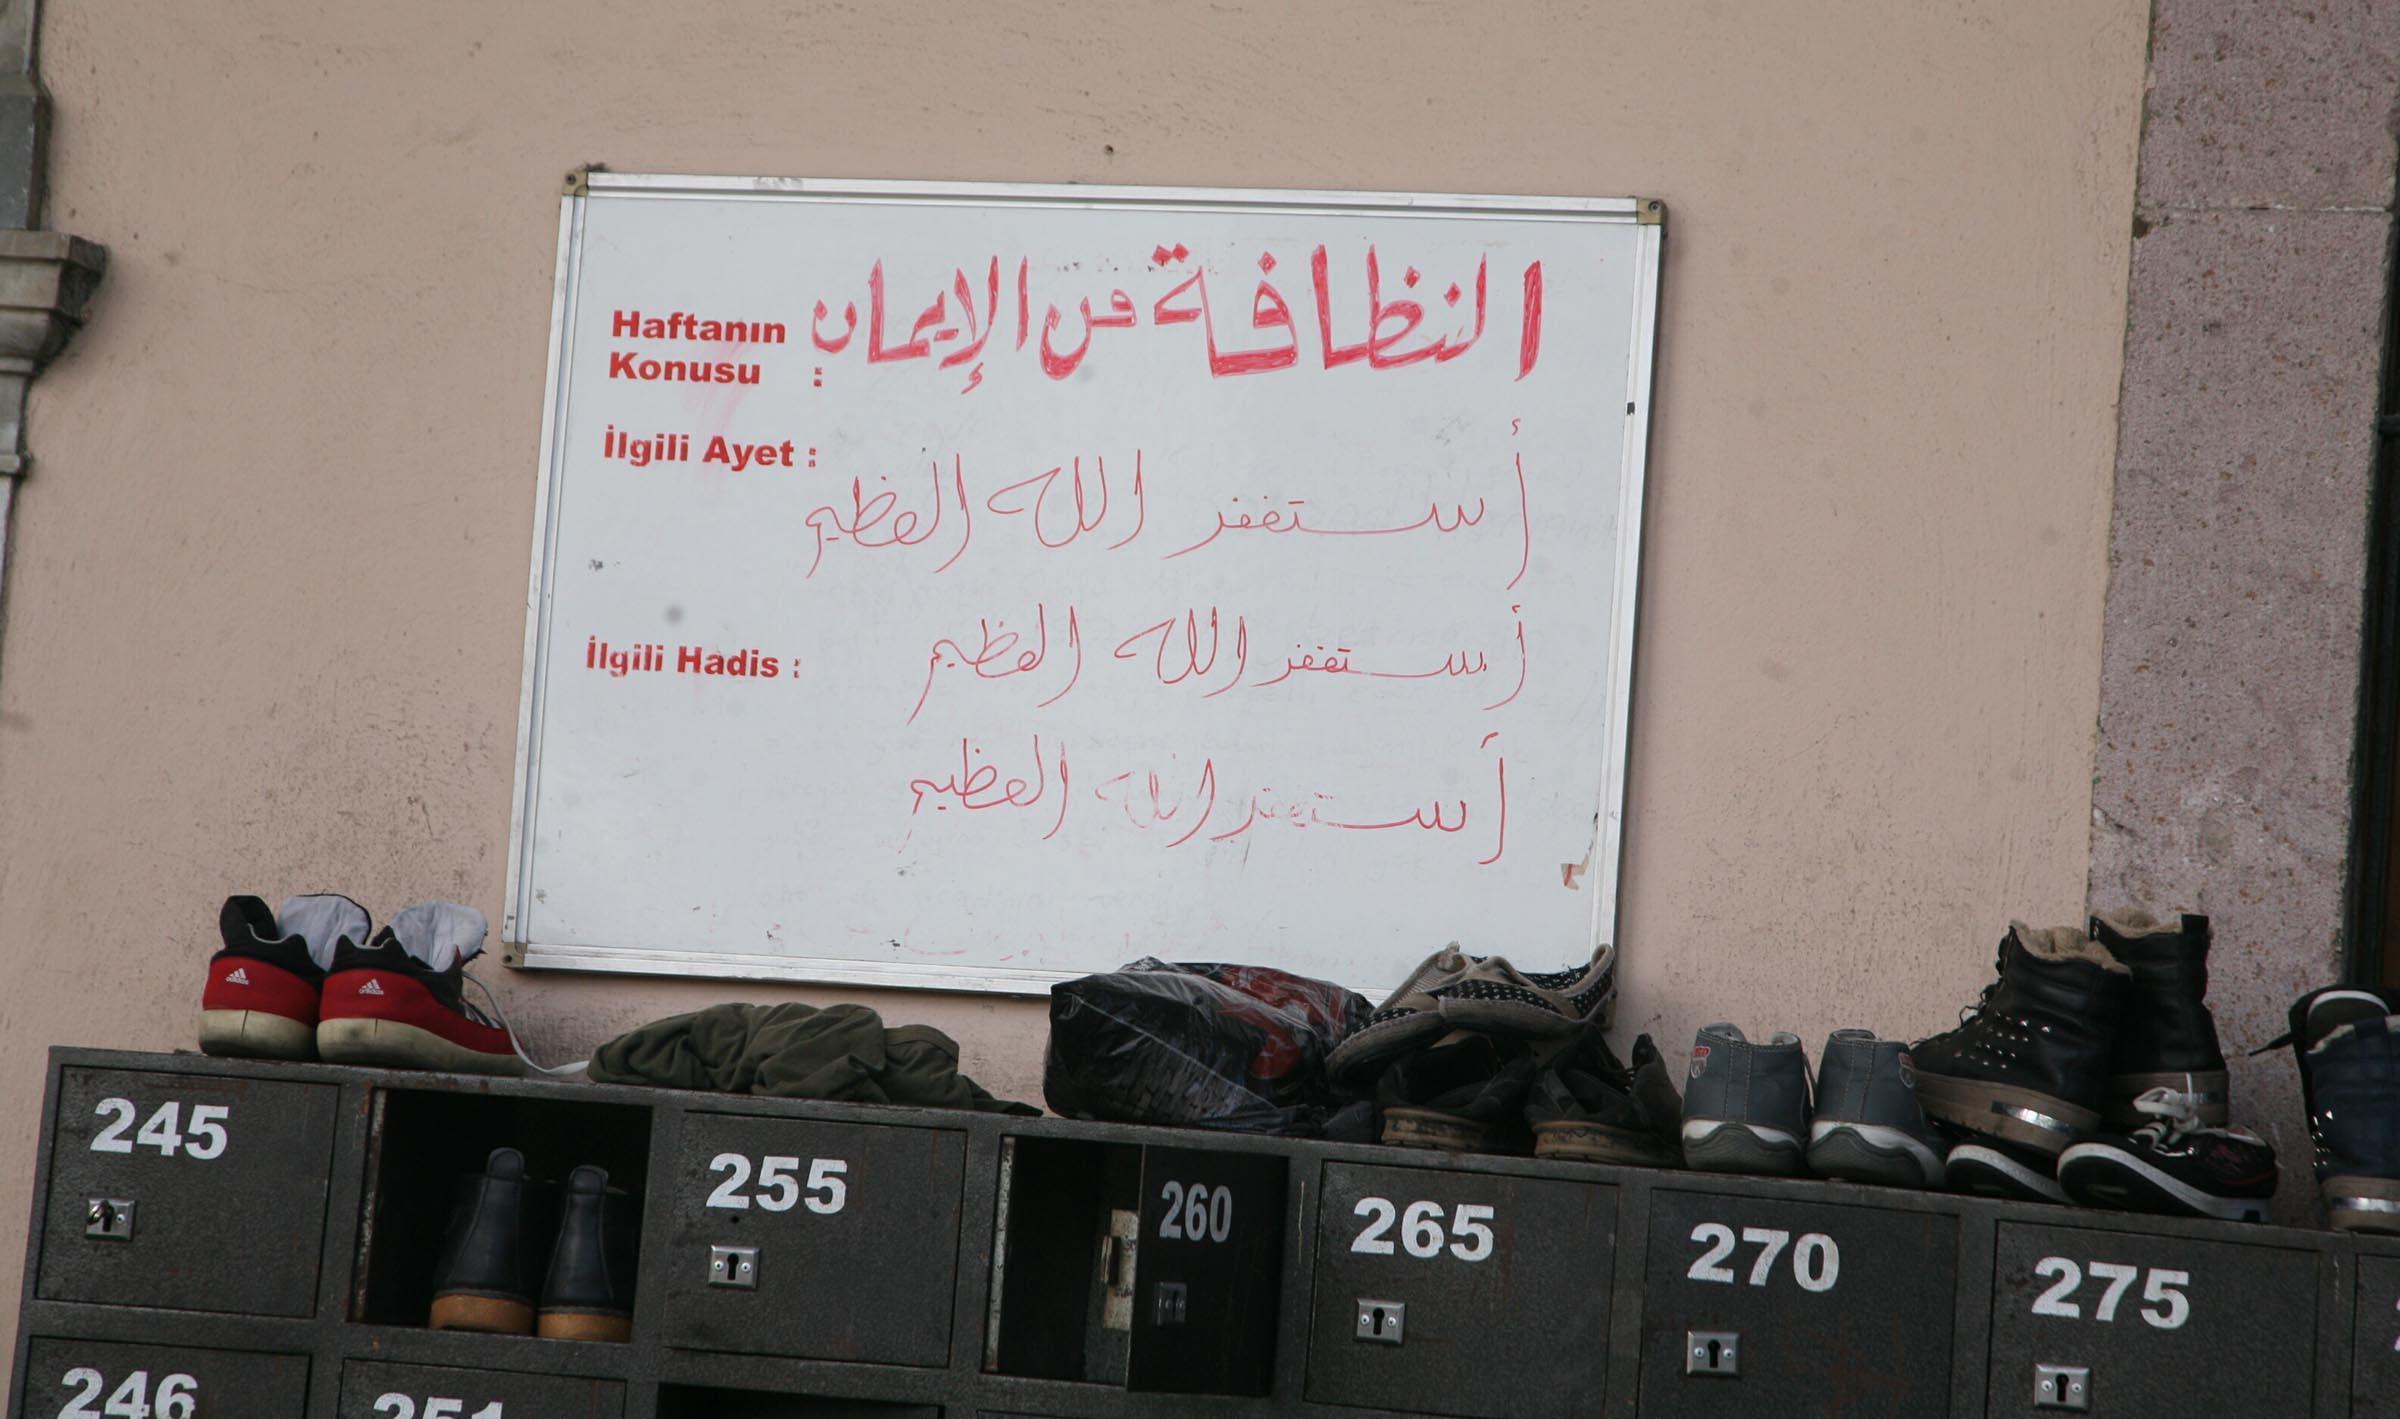 Haftanın
Konusu :
النظافة من الإيمان
İlgili Ayet :
أستغفر الله العظيم
İlgili Hadis :
أستغفر الله العظيم
أستغفر الله العظيم
adidas
adidas
245
255
260
265
270
275
246
251